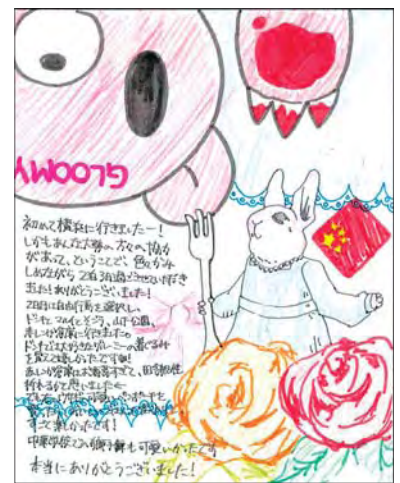 GLOOMY
初めて横浜に行きましたー!
しかもあんな大勢の方々の協力
があって、ということで、色々かみ
しめながら2泊3日過ごさせていただき
ました!ありがとうございました!
2日目は自由行動を選択し、
ドンキとマルイとそごう、山下公園、
赤レンガ倉庫に行きました
ドンキでは大好きなグルーミーの着ぐるみ
を買えて嬉しかったです
赤レンガ倉庫はお洒落すぎて、田舎根性
折れるかと思いました
すごく楽しかったです!
中華学校での獅子舞も可愛いかったです
本当にありがとうございました!